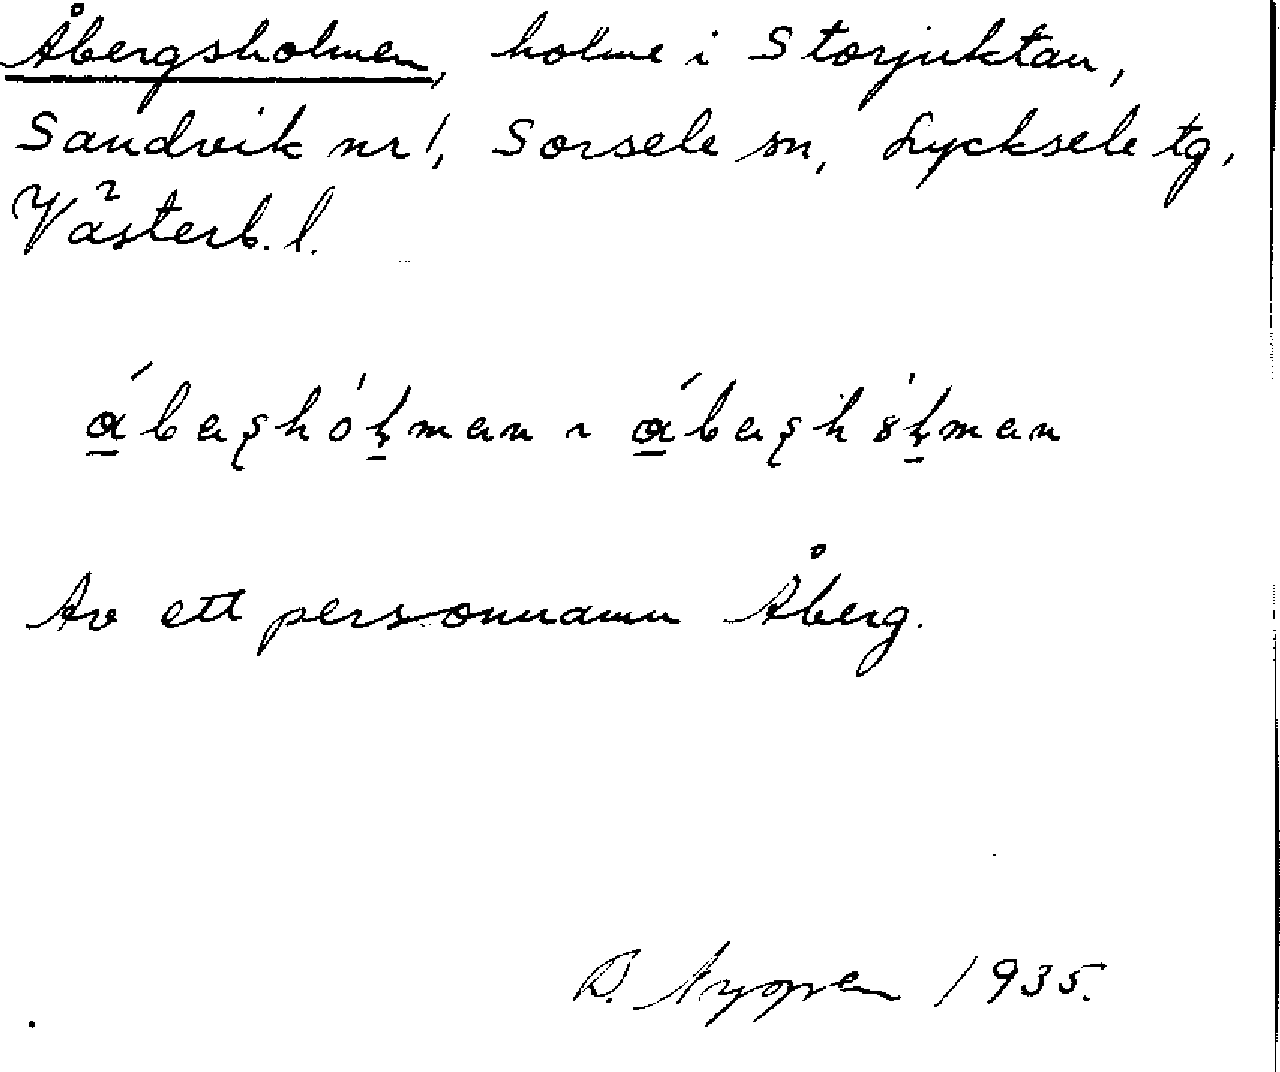 Åbergsholmen, holme i Storjuktan,
Sandvik nr 1, Sorsele sn, Lycksele tg,
Västerb. l.
Av ett personnamn Åberg.
1935.